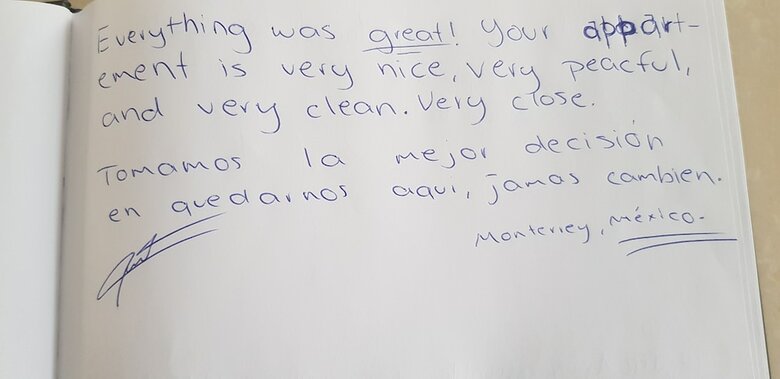 Everything was great! Your appart-
ement is very nice, very peacful,
and very clean. Very close.
Tomamos la mejor decisión
en quedarnos aqui, jamas cambien.
Monterrey, México.